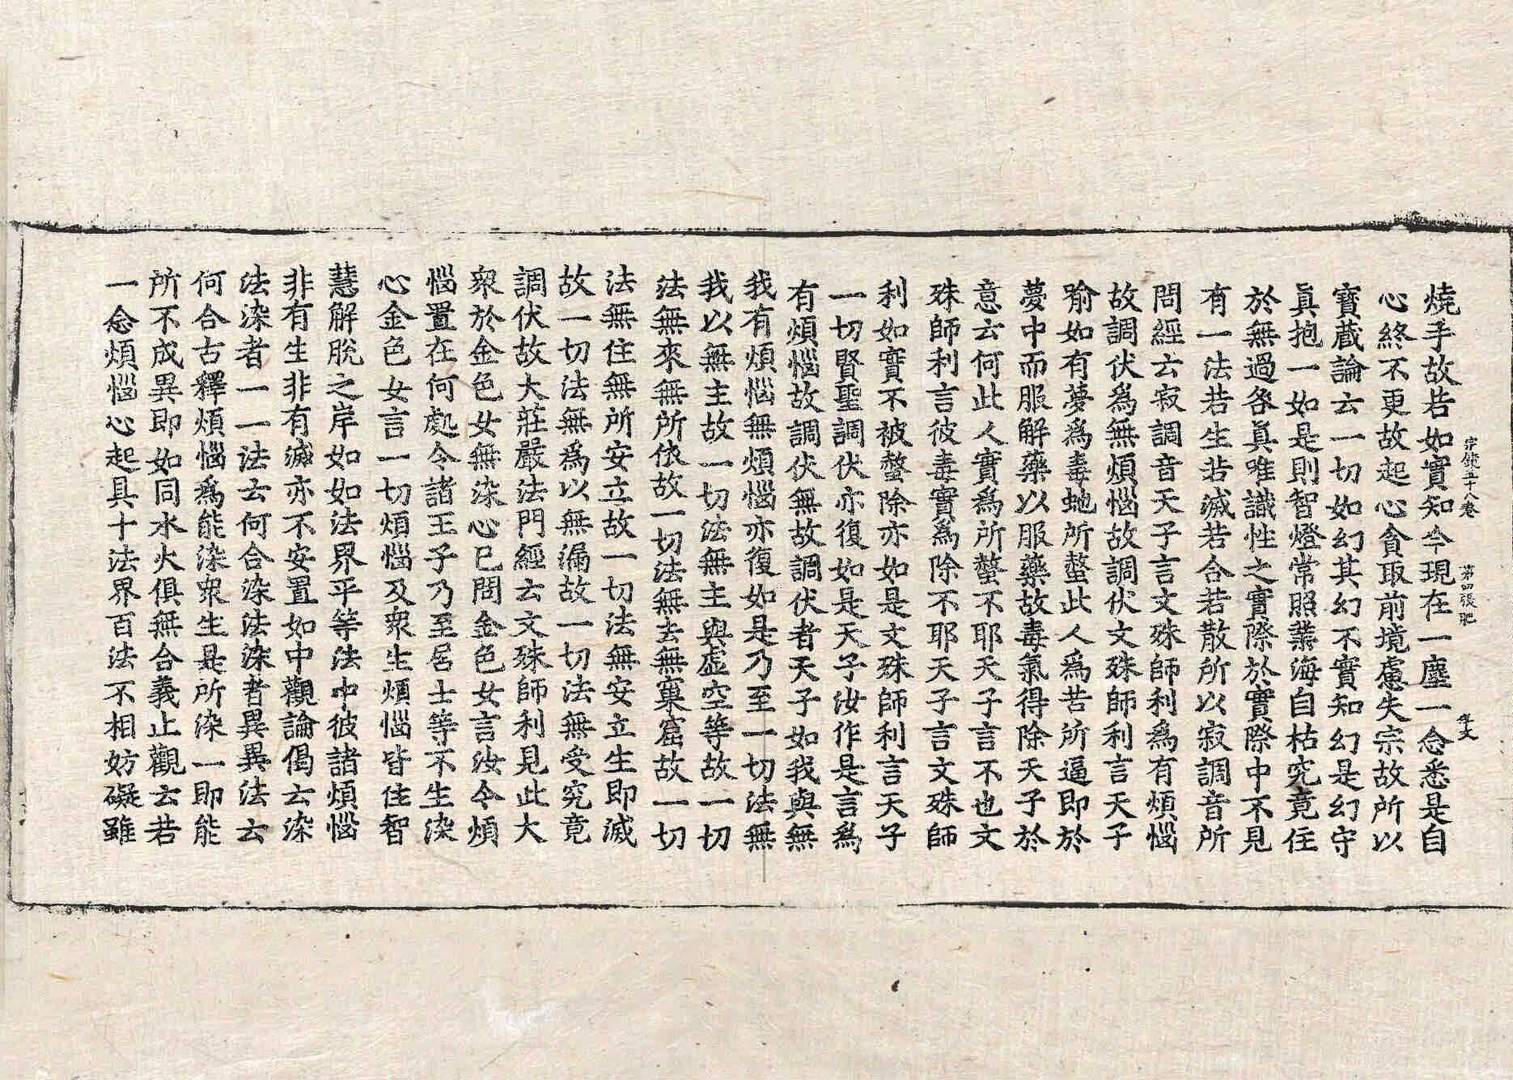 宗鏡三十八卷 第四張 肥
燒手故若如實知今現在一塵一念悉是自
心終不更故起心貪取前境慮失宗故所以
寶藏論云一切如幻其幻不實知幻是幻守
眞抱一如是則智燈常照業海自枯究竟住
於無過咎眞唯識性之實際於實際中不見
有一法若生若滅若合若散所以寂調音所
問經云寂調音天子言文殊師利爲有煩惱
故調伏爲無煩惱故調伏文殊師利言天子
喻如有夢爲毒虵所螫此人爲苦所逼即於
夢中而服解藥以服藥故毒氣得除天子於
意云何此人實爲所螫不耶天子言不也文
殊師利言彼毒實爲除不耶天子言文殊師
利如實不被螫除亦如是文殊師利言天子
一切賢聖調伏亦復如是天子汝作是言爲
有煩惱故調伏無故調伏者天子如我與無
我有煩惱無煩惱亦復如是乃至一切法無
我以無主故一切法無主與虛空等故一切
法無來無所依故一切法無去無窠窟故一切
法無住無所安立故一切法無安立生即滅
故一切法無爲以無漏故一切法無受究竟
調伏故大莊嚴法門經云文殊師利見此大
衆於金色女無染心已問金色女言汝今煩
惱置在何處令諸王子乃至居士等不生染
心金色女言一切煩惱及衆生煩惱皆住智
慧解脫之岸如如法界平等法中彼諸煩惱
非有生非有滅亦不安置如中觀論偈云染
法染者一一法云何合染法染者異異法云
何合古釋煩惱爲能染衆生是所染一即能
所不成異即如同水火俱無合義止觀云若
一念煩惱心起具十法界百法不相妨礙雖